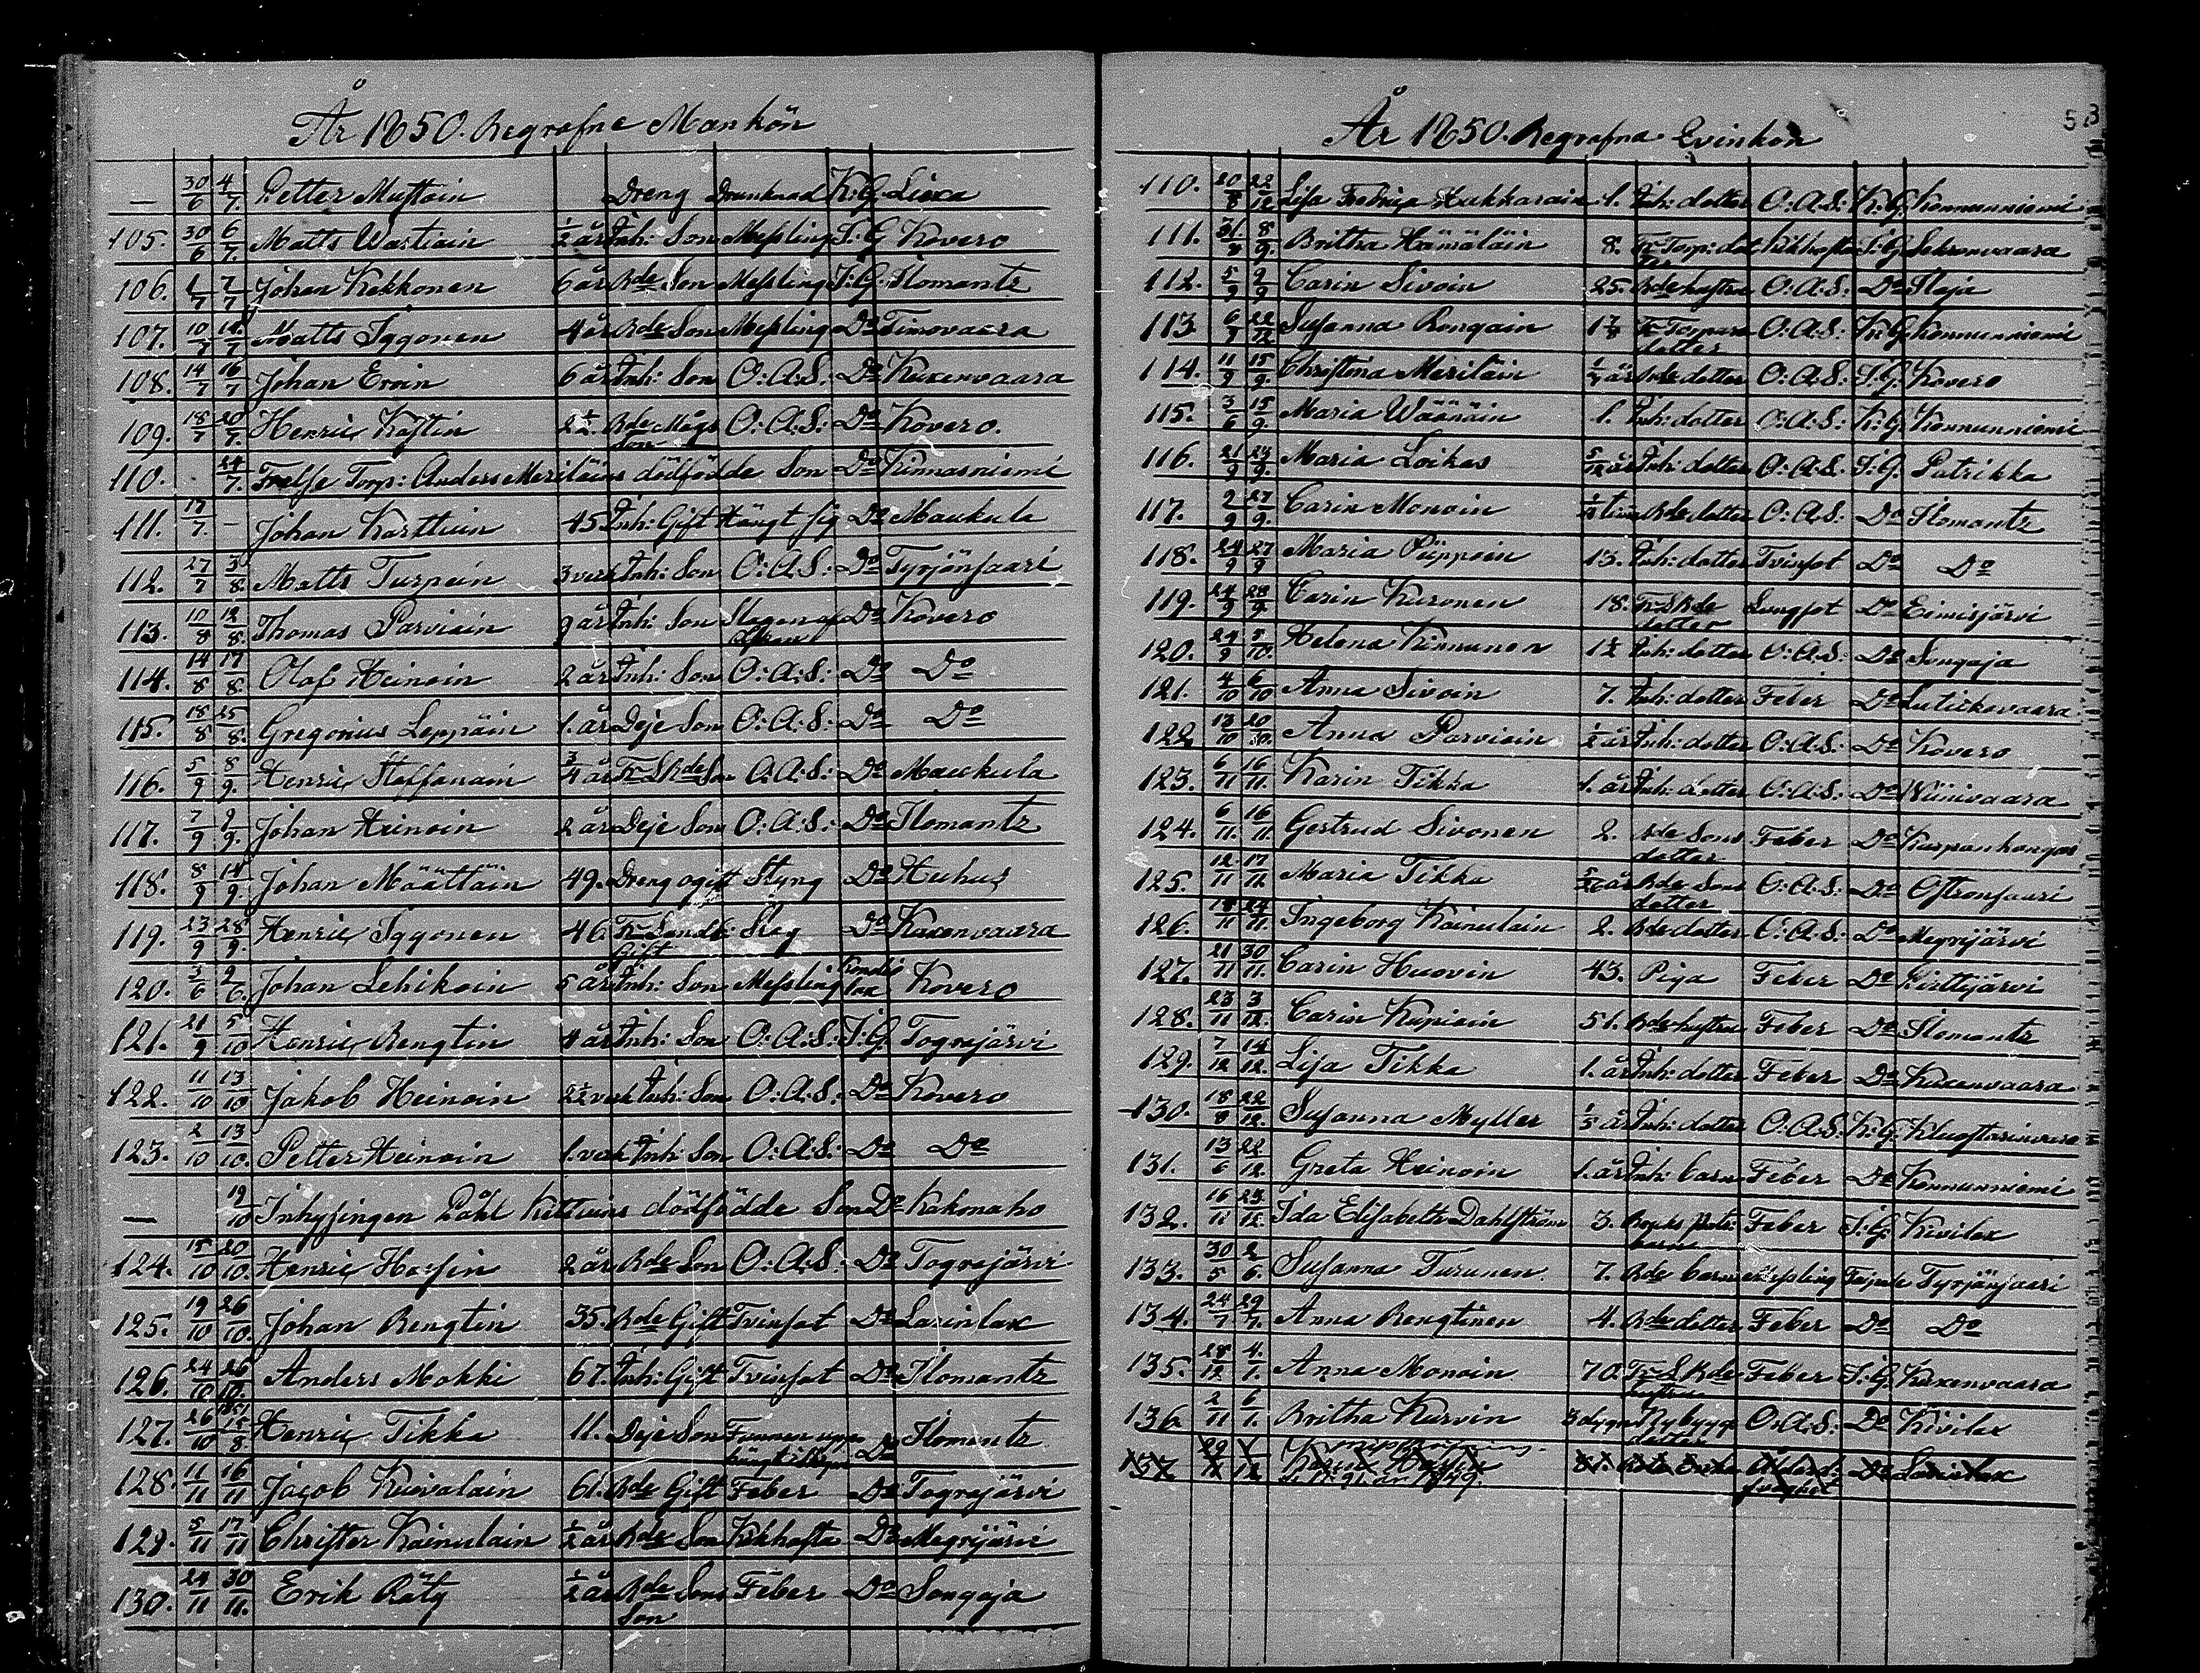 År 1850. Begrafne Mankön
— 30/6 4/7. Petter Mustoin Dreng Drunknad K:G. Liexa
105. 30/6 6/7. Matts Wartiain 1/2 år Inh: Son Messling I:G Kovero
106. 1/7 7/7 Johan Kekkonen 6 år Bde Son Messling I:G. Ilomantz
107. 10/7 14/7 Matts Iggonen 4 år Bde Son Messling Do Timovaara
108. 14/7 16/7 Johan Eroin 6 år Inh: Son O:A:S: Do Kuxenvaara
109. 18/7 20/7. Henric Kostin 2 1/2. Bde Mågs Son O:A:S: Do Kovero.
110. 24/7. Frelse Torp: Anders Meriläins dödfödde Son Do Kinnasniemi
111. 17/7. – Johan Karttuin 45 Inh: Gift Hängt sig Do Maukula
112. 27/7 3/8. Matts Turpein 3 veck Inh: Son O:A:S: Do Tyrjönsaari
113. 10/8 12/8. Thomas Parviain 9 år Inh: Son Slagen af Do Kovero
114. 14/8 17/8. Olof Heinoin 2 år Inh: Son O:A:S: Do Do
115. 18/8 25/8. Gregorius Leppäin 1. år Deje Son O:A:S: Do Do
116. 5/9 8/9. Henric Steffanain 3/4 år Fr Skde Son O:A:S: Do Maukula
117. 7/9 9/9. Johan Heinoin 2 år Deje Son O:A:S: Do Ilomantz
118. 8/9 14/9. Johan Määttäin 49. Dreng ogift Styng Do Huhus
119. 23/9 28/9. Henric Iggonen 46. Fr Landb: Gift Slag Do Kuxenvaara
120. 3/6 9/6. Johan Lehikoin 5 år Inh: Son Messling Kondio lax Kovero
121. 21/9 5/10 Henric Rengtin 4 år Inh: Son O:A:S: I:G. Togrejärvi
122. 11/10 13/10 Jakob Heinoin 2 1/2 veck Inh: Son O:A:S: Do Kovero
123. 2/10 13/10. Petter Heinoin 1. veck Inh: Son O:A:S: Do Do
— 19/10 Inhysingen Påhl Kettuins dödfödde Son Do Kakonaho
124. 15/10 20/10. Henric Hassin 2 år Bde Son O:A:S: Do Togrejärvi
125. 19/10 26/10. Johan Rengtin 35. Bde Gift Tvinsot Do Larinlax
126. 24/10 26/10. Anders Mokki 67. Inh: Gift Tvinsot Do Ilomantz
127. 26/10 1851 15/8 Henric Tikka 11. Deje Son Funnen Do Ilomantz
128. 11/11 16/11 Jacob Kuivalain 61. Bde Gift Feber Do Togrejärvi
129. 5/11 17/11 Christer Kainulain 1/2 år Bde Son Kikhosta Do Megrijärvi
130. 24/11 30/11. Erik Räty 1/2 år Bde Sons Son Feber Do Songaja
År 1850. Begrafna Qvinkön
58
110. 20/8 22/12 Lisa Fredrica Hukkarain 1. Inh: dotter O:A:S: K:G. Konnunniemi
111. 31/8 8/9. Britha Hämäläin 8. Fr Torp: dot Kikhosta I:G.
112. 5/9 9/9 Carin Sivoin 25. Bde hustru O:A:S: Do Ilaja
113 6/9 22/12 Susanna Rongain 1 7/8 Fr Torpare dotter O:A:S: K:G. Konnunniemi
114. 11/9 15/9. Christina Meriläin år Bde dotter O:A:S: I:G. Kovero
115. 3/6 15/9. Maria Väänäin 1. Inh: dotter O:A:S: K:G. Konnunniemi
116. 21/9 23/9. Maria Loikas 5/12 år Inh: dotter O:A:S: I:G. Patrikka
117. 2/9 27/9. Carin Monoin Bde dotter O:A:S: Do Ilomantz
118. 24/9 27/9 Maria Piippoin 13. Inh: dotter Tvinsot Do Do
119. 24/9 28/9. Carin Kuronen 18. Fr Skde dotter Lungsot Do Eimisjärvi
120. 29/9 5/10. Helena Kinnunen 1 1/2 Inh: dotter O:A:S: Do Songaja
121. 4/10 6/10 Anna Sivoin 7. Inh: dotter Feber Do Lutickavaara
122. 13/10 20/10. Anna Parviain 1/2 år Inh: dotter O:A:S: Do Kovero
123. 6/11 16/11. Karin Tikka 1. år Inh: dotter O:A:S: Do Wiinivaara
124. 6/11. 16/11. Gertrud Sivonen 2. Bde Sons dotter Feber Do Kuspankangas
125. 12/11 17/11. Maria Tikka 5/12 år Bde Sons dotter O:A:S: Do Oftronsaari
126. 18/11 24/11. Ingeborg Kainulain 2. Bde dotter O:A:S: Do Megrijärvi
127. 21/11 30/11. Carin Huovin 43. Piga Feber Do Lirttijärvi
128. 23/11 3/12. Carin Kupiain 51. Bde hustru Feber Do Ilomantz
129. 7/12 14/12. Lisa Tikka 1. år Inh: dotter Feber Do Kuxenvaara
130. 18/8 22/12. Susanna Myller 1/5 år Inh: dotter O:A:S. K:G.
131. 13/6 22/12. Greta Heinoin 1. år Inh: barn Feber Do Konnunniemi
132. 16/11 23/12. Ida Elisabeth Dahlström 3. barn Feber I:G. Kivilax
133. 30/5 2/6. Susanna Turunen 7. Bde barn Messling Tyrjänsaari
134. 24/7 29/7. Anna Rengtinen 4. Bde dotter Feber Do Do
135. 28/12 4/1. Anna Monoin 70. Fr Skde hustru Feber I:G. Kuxenvaara
136. 2/11 6/1. Britha Kurvin 3 dygn Nybygg dotter O:A:S: Do Kivilax
137 29/11 1/12 Karin Hassin 81. Bde Enka Ålderd: svaghet Do Larinlax
år 1849.